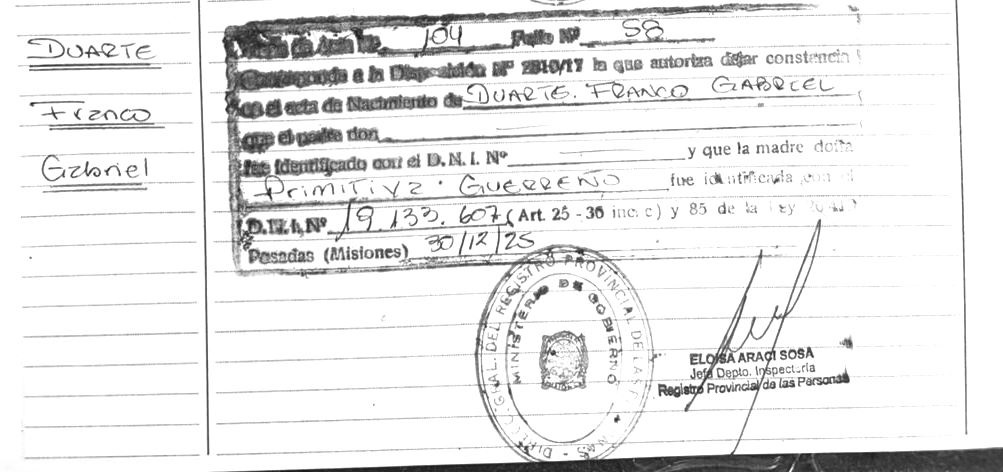 DUARTE
Franco
Gabriel
de Acta Nº 104 Folio Nº 58
Corresponde a la Disposición Nº 2810/17 la que autoriza dejar constancia
en el acta de Nacimiento de DUARTE. FRANCO GABRIEL
que el padre don
fue identificado con el D.N.I. Nº y que la madre doña
Primitiva. GUERREÑO fue identificada con el
D.N.I. Nº 19.133.607 (Art. 25 - 36 inc. c) y 85 de la Ley
Posadas (Misiones) 30/12/25
DIREC. GRAL. DEL REGISTRO PROVINCIAL DE LAS
MINISTERIO DE GOBIERNO
ELOISA ARACI SOSA
Jefa Depto. Inspectoría
Registro Provincial de las Personas